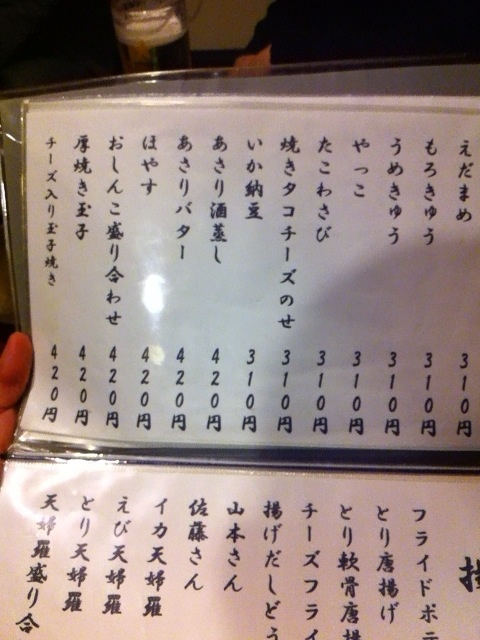 えだまめ 310円
もろきゅう 310円
うめきゅう 310円
やっこ 310円
たこわさび 310円
焼きタコチーズのせ 310円
いか納豆 310円
あさり酒蒸し 420円
あさりバター 420円
ほやす 420円
おしんこ盛り合わせ 420円
厚焼き玉子 420円
チーズ入り玉子焼き 420円
フライドポテ
とり唐揚げ
とり軟骨唐揚
チーズフライ
揚げだしどう
山本さん
佐藤さん
イカ天婦羅
えび天婦羅
とり天婦羅
天婦羅盛り合